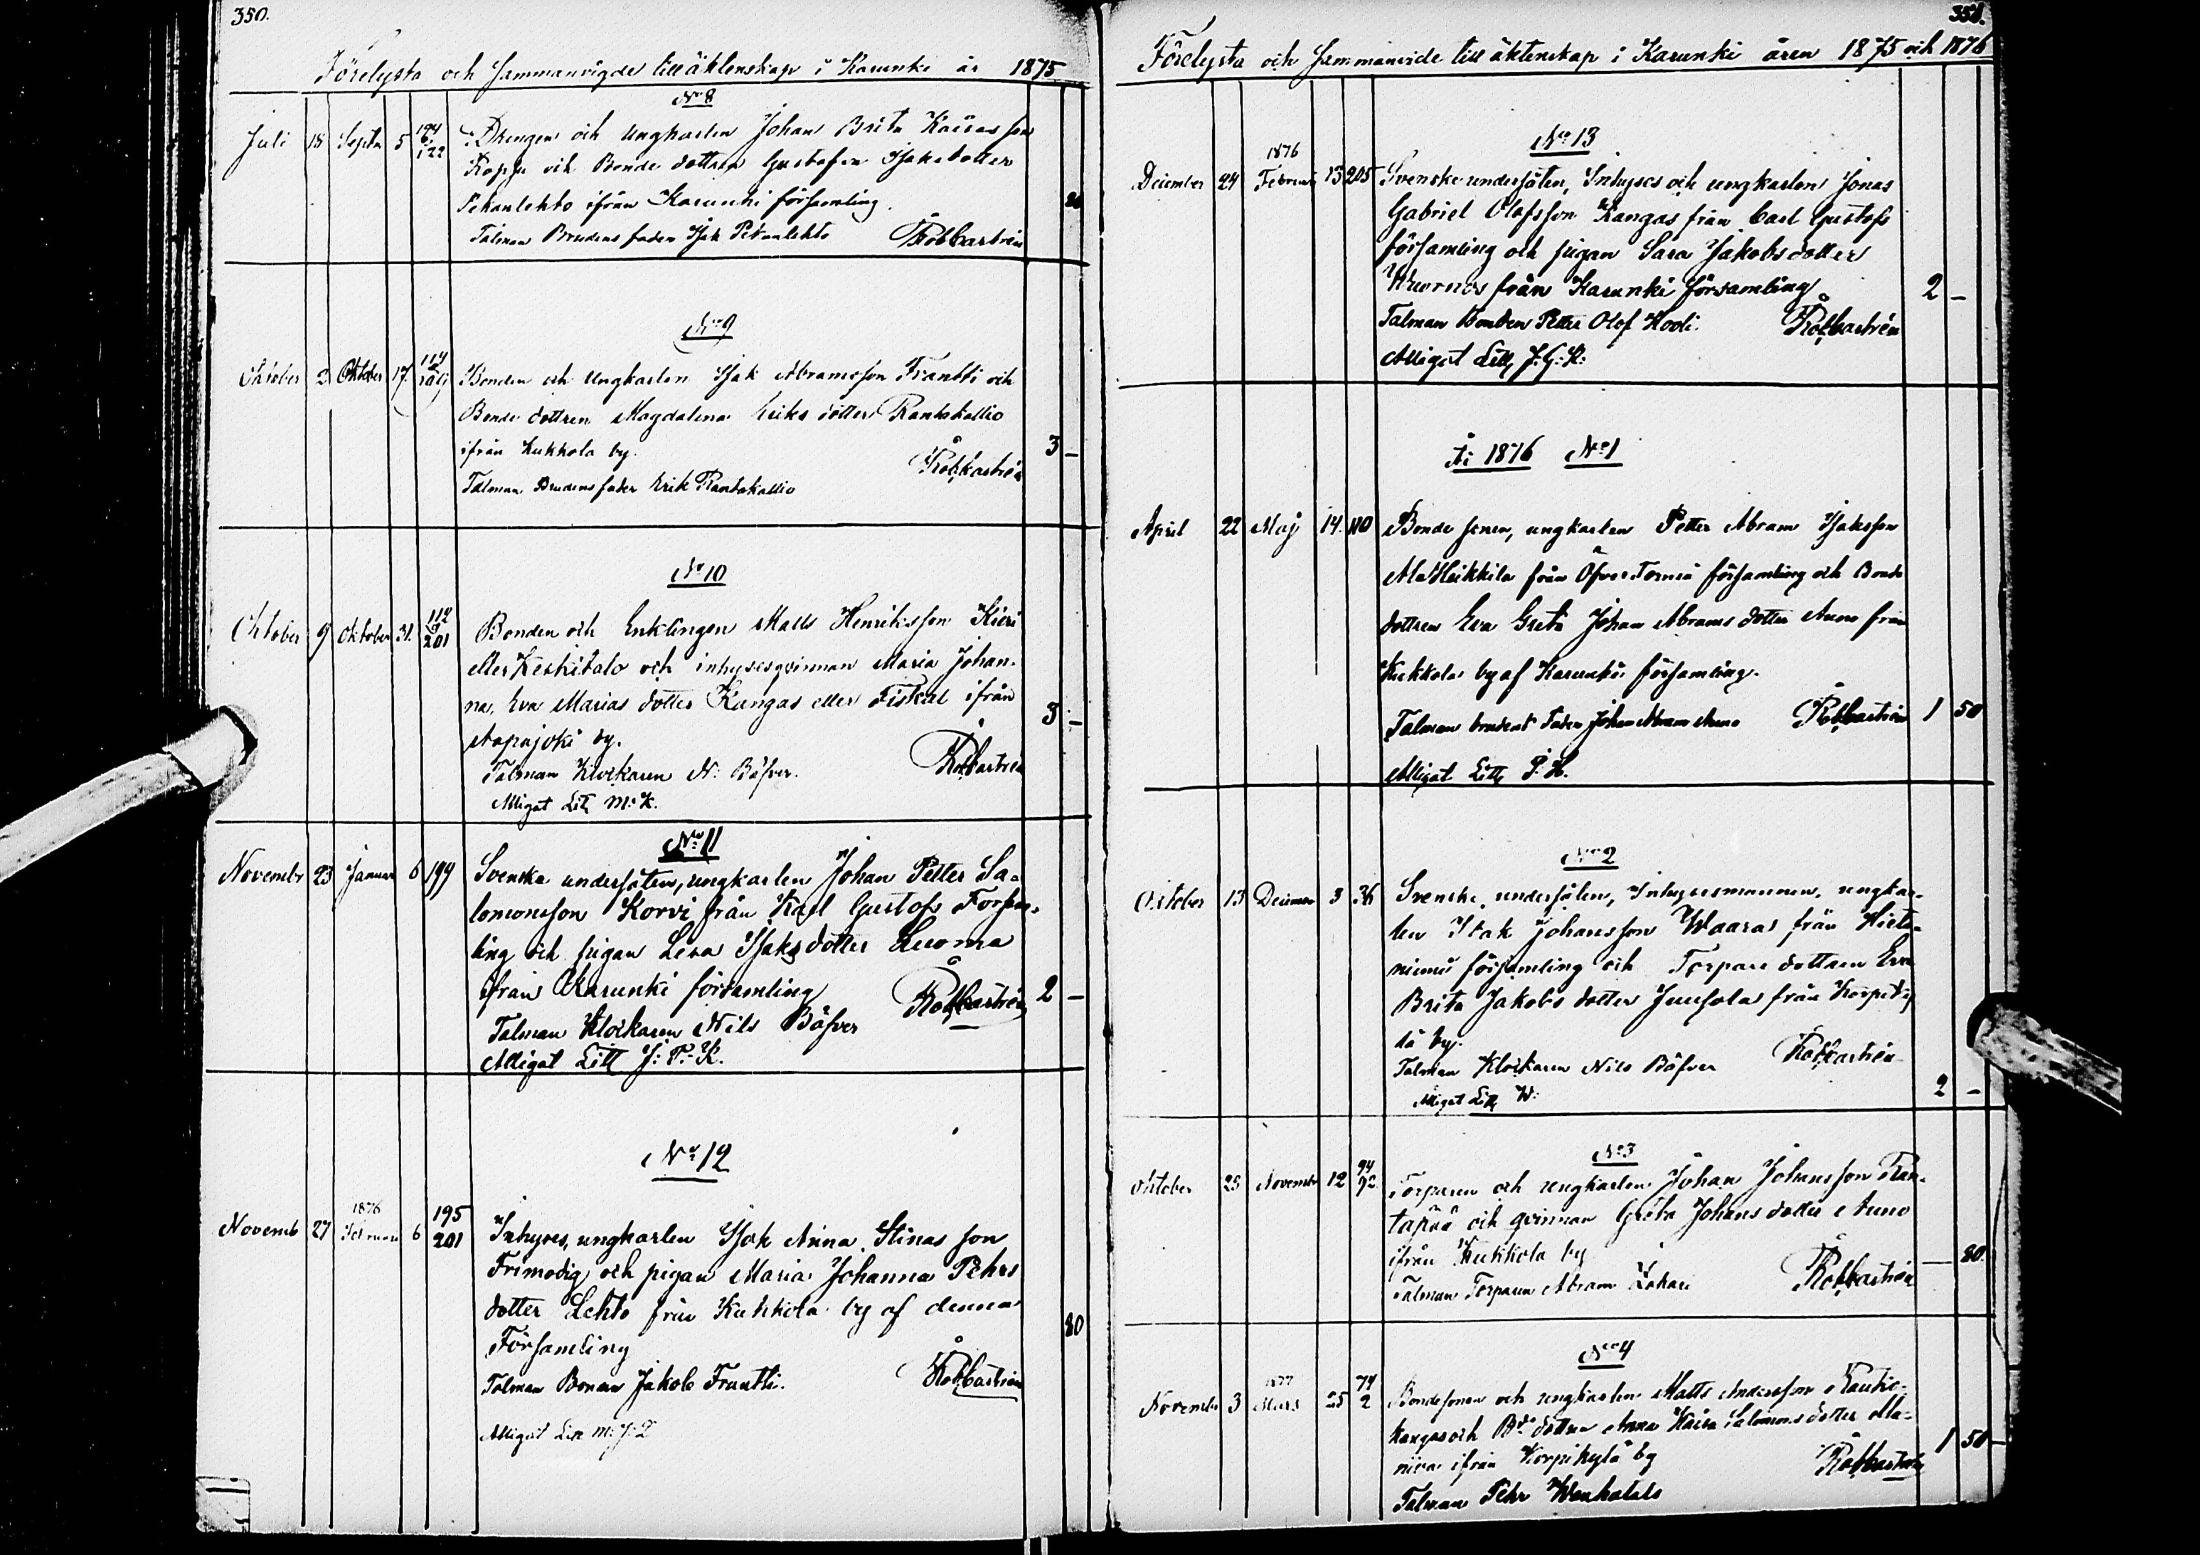 350.
Förelysta och Sammanvigde till äktenskap i Karunki år 1875
No 8
Juli 18 Septm 5 174 122 Drengen och Ungkarlen Johan Brita Kaisas son
Koppa och Bonde dottren Gustafva Isaksdotter
Pekanlehto ifrån Karunki församling
20
Talman Brudens fader Isak Pekanlehto Rob Castrén
No 9
Oktober 2 Oktober 17. 114 Bonden och Ungkarlen Isak Abramsson Frantti och
Bonde dottren Magdalena Eriks dotter Rantakallio
ifrån Kukkola by. 3 –
Talman Brudens fader Erik Rantakallio Rob Castrén
No 10
Oktober 9 Oktober 31. 112 201 Bonden och Enklingen Matts Henriksson Kieri
eller Keskitalo och inhysesqvinnan Maria Johan-
na, Eva Marias dotter Kangas eller Fiskal ifrån 3 –
Aapajoki by.
Talman Klockaren N: Bäfver. Rob Castrén
Alligat Litt M: K.
No 11
Novembr 23 Januar 6 199 Svenska undersåten, ungkarlen Johan Petter Sa-
lomonsson Korvi från Karl Gustafs Försam-
ling och pigan Lena Isaks dotter Luoma
ifrån Karunki församling Rob Castrén 2 –
Talman Klockaren Nils Bäfver
Alligat Litt J: P: K.
No 12
Novemb 27 1876 Februari 6 195 201 Inhyses, ungkarlen Isak Anna Stinas son
Frimodig och pigan Maria Johanna Pehrs
dotter Lehto från Kukkola by af denna 80
Församling
Talman Bonden Jakob Frantti. Rob Castrén
Alligat Litt M: J: L
351.
Förelysta och Sammanvide till äktenskap i Karunki åren 1875 och 1876
No 13
December 24 1876 Februari 13 205 Svenske undersåten, Inhyses och ungkarlen Jonas
Gabriel Olofsson Kangas från Carl Gustafs
församling och pigan Sara Jakobs dotter
från Karunki församling 2 –
Talman Bonden Petter Olof Kooli. Rob Castrén
Alligat Litt, J. G: K:
År 1876 No 1
April 22 Maj 14. 110 Bonde sonen, ungkarlen Petter Abram Isaksson
Ala Heikkilä från Öfver Torneå församling och Bonde
dottren Eva Greta Johan Abrams dotter Aune från
Kukkola by af Karunki församling.
Talman brudens fader Johan Abram Aune Rob Castrén 1 50
Alligat Litt P: H.
No 2
Oktober 13 Decemer 3 36 Svenske undersåten, Inhysesmannen, ungkar-
len Isak Johansson Waara från Hieta-
niemi församling och Torpare dottren Eva
Brita Jakobs dotter Junsola från Korpiky-
lä by.
Talman Klockaren Nils Bäfver Rob Castrén
Alligat Litt W: 2 –
No 3
Oktober 23 Novembr 12 94 92 Torparen och ungkarlen Johan Johansson Ran-
tapää och qvinnan Greta Johans dotter Aune
ifrån Kukkola by — 80.
Talman Torparen Abram Lahari Rob Castrén
No 4
November 3 1877 Mars 25 74 2 Bondesonen och ungkarlen Matts Andersson Rautio-
kangas och Bde dottren Anna Kaisa Salomons dotter Ala-
niva ifrån Korpikylä by 1 50
Talman Pehr Rob Castrén